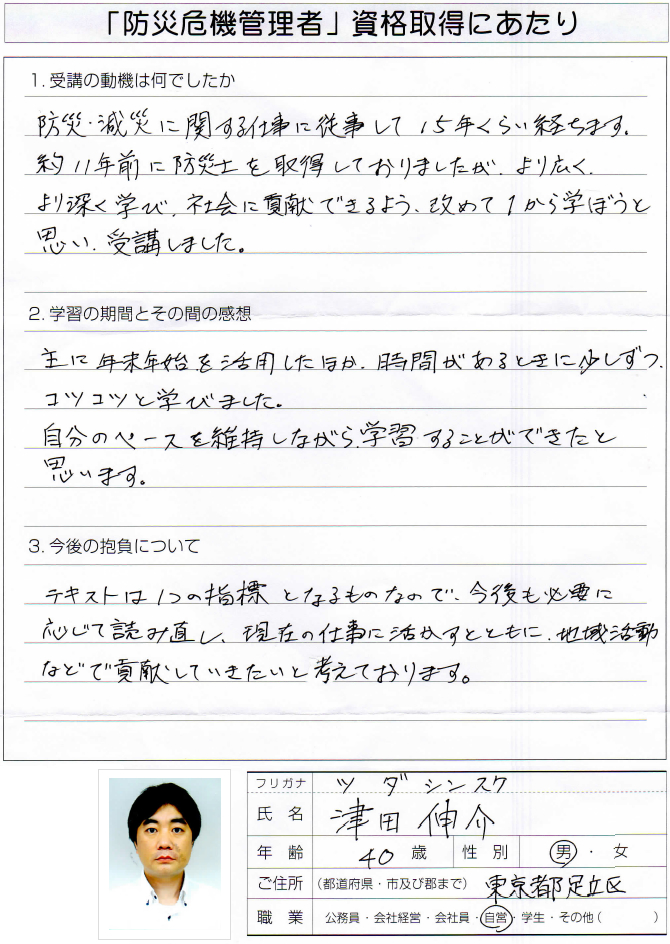 「防災危機管理者」資格取得にあたり
1. 受講の動機は何でしたか
防災・減災に関する仕事に従事して15年くらい経ちます。
約11年前に防災士を取得しておりましたが、より広く、
より深く学び、社会に貢献できるよう、改めて1から学ぼうと
思い、受講しました。
2. 学習の期間とその間の感想
主に年末年始を活用したほか、時間があるときに少しずつ、
コツコツと学びました。
自分のペースを維持しながら、学習することができたと
思います。
3. 今後の抱負について
テキストは1つの指標となるものなので、今後も必要に
応じて読み直し、現在の仕事に活かすとともに、地域活動
などで貢献していきたいと考えております。
フリガナ ツダ シンスク
氏名 津田 伸介
年齢 40歳 性別 男・女
ご住所 (都道府県・市及び郡まで) 東京都足立区
職業 公務員・会社経営・会社員・自営・学生・その他( )